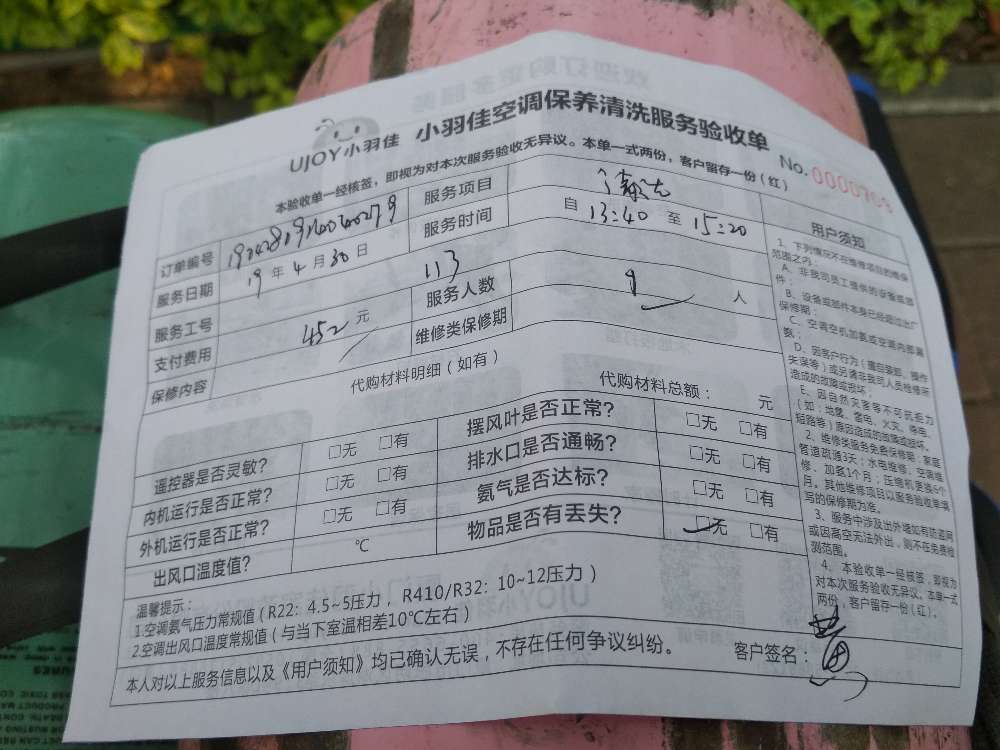 UJOY小羽佳 小羽佳空调保养清洗服务验收单
本验收单一经核签，即视为对本次服务验收无异议。本单一式两份，客户留存一份（红） No.
订单编号
服务项目
服务日期 19年4月30日
服务时间 自 13:40 至 15:20
服务工号 113
服务人数 人
支付费用 元
维修类保修期
保修内容
代购材料明细（如有） 代购材料总额： 元
遥控器是否灵敏？ □无 □有 摆风叶是否正常？ □无 □有
内机运行是否正常？ □无 □有 排水口是否通畅？ □无 □有
外机运行是否正常？ □无 □有 氨气是否达标？ □无 □有
出风口温度值？ ℃ 物品是否有丢失？ □无 □有
温馨提示：
1.空调氨气压力常规值（R22：4.5~5压力， R410/R32：10~12压力）
2空调出风口温度常规值（与当下室温相差10℃左右）
本人对以上服务信息以及《用户须知》均已确认无误，不存在任何争议纠纷。 客户签名：
用户须知
1、下列情况不在维修项目的维保
范围之内：
A、非我司员工提供的设备或部
件；
B、设备或部件本身已经超过出厂
保修期；
C、空调空机加氨或空调内部漏
氨；
D、因客户行为（擅自装卸、操作
失误等）或另请非我司人员检修所
造成的故障或损坏；
E、因自然灾害等不可抗拒力
（如：地震、雷电、火灾、停电、
短路等）原因造成的故障或损坏。
2、维修类服务免费保修期：家庭
管道疏通3天；水电维修、空调维
修、加氨1个月；压缩机更换6个
月。其他维修项目以服务验收单填
写的保修期为准。
3、服务中涉及出外墙如有防盗网
或因高空无法外出，则不在免费检
测范围。
4、本验收单一经核签，即视为
对本次服务验收无异议；本单一式
两份，客户留存一份（红）。